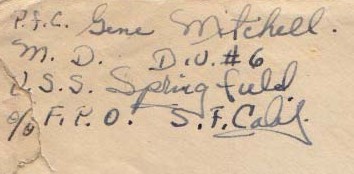 P.F.C. Gene Mitchell.
M. D. D.U. #6
U.S.S. Springfield
c/o F.P.O. S.F. Calif.